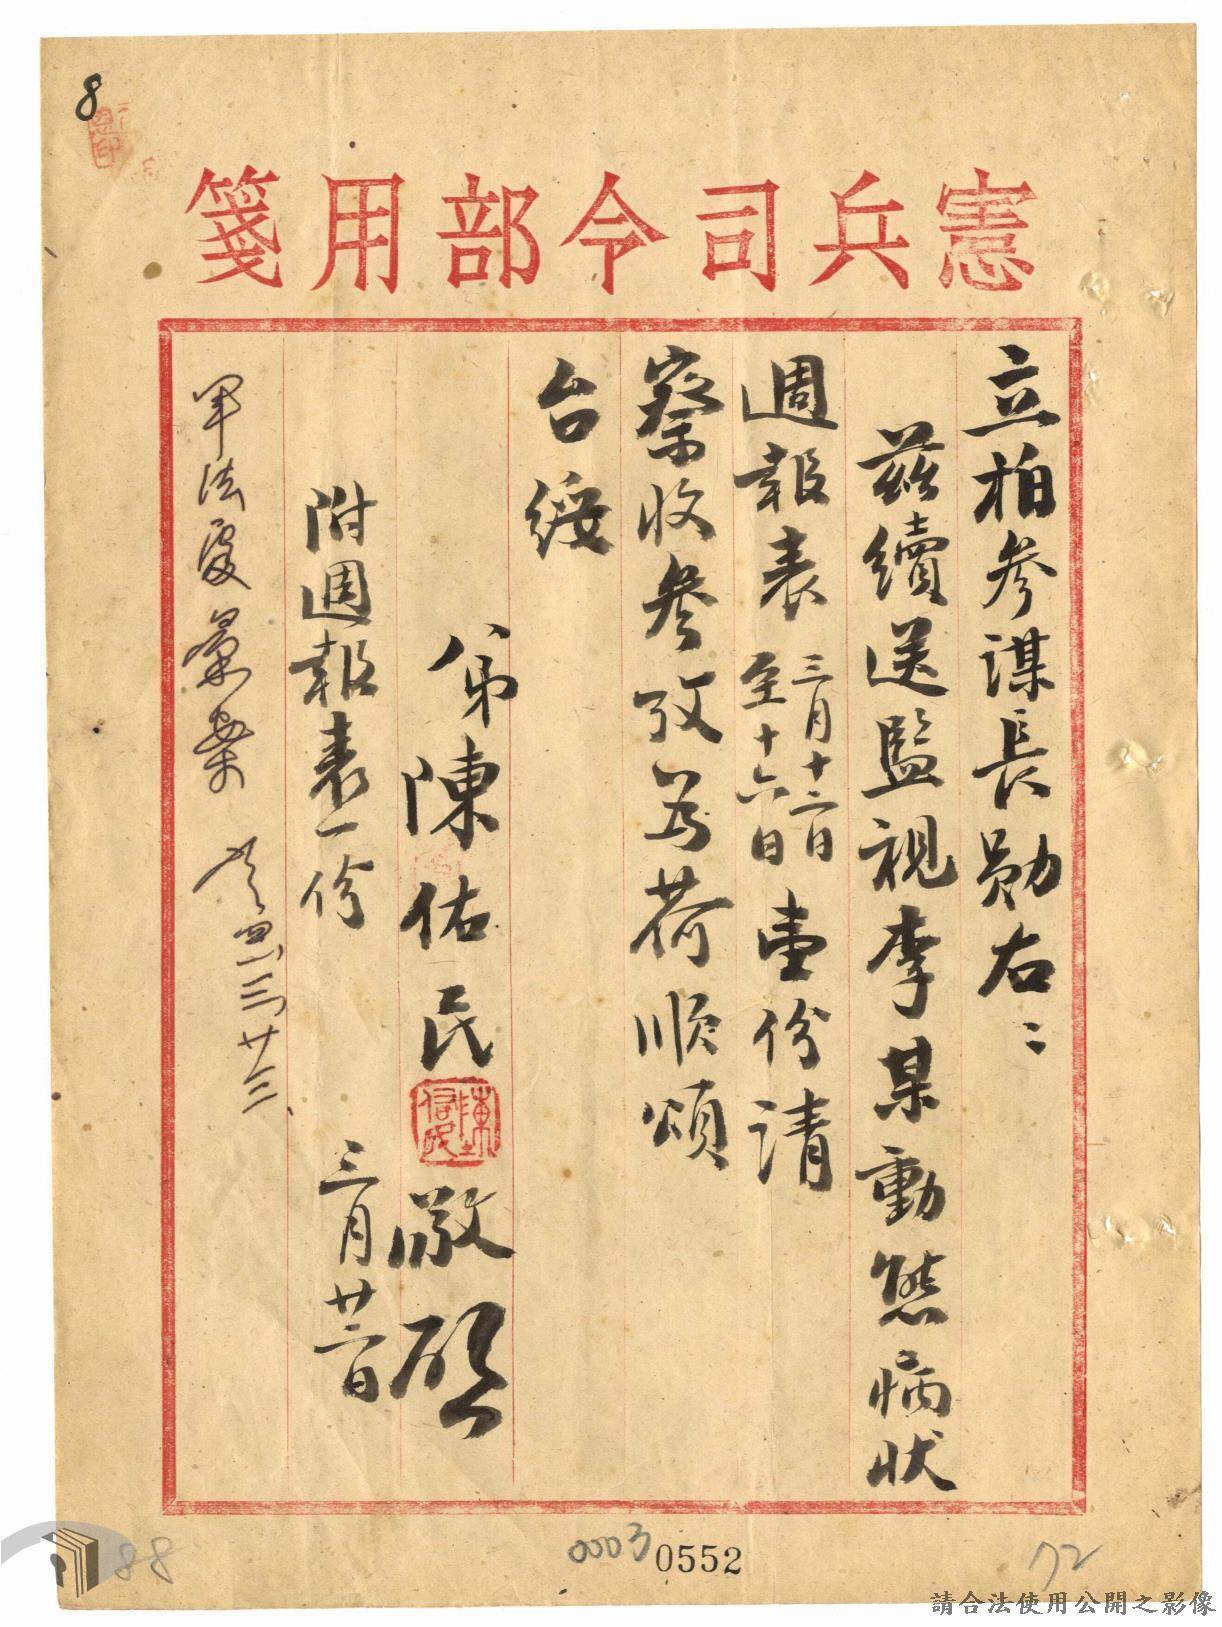 8
憲兵司令部用箋
立柏參謀長勛右：
茲續送監視李某動態病狀
週報表三月十二日至十六日壹份請
察收參攷為荷順頌
台綏
弟陳佑民敬啟
附週報表一份 三月廿二日
軍法處彙案 三廿三
88
0003
0552
72
請合法使用公開之影像